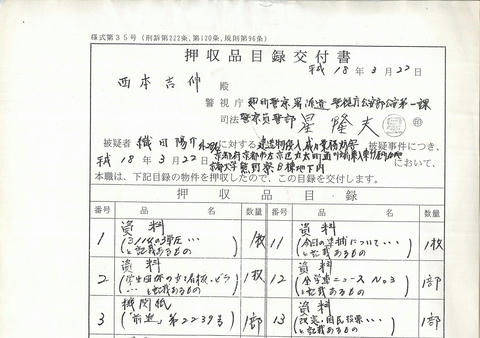 様式第35号（刑訴第222条、第120条、規則第96条）
押収品目録交付書
平成 18年 3月 22日
西本吉伸 殿
警視庁 麹町警察署派遣 警視庁公安部公安第一課
司法 警察員警部 星 隆夫 ㊞
被疑者 織田陽介 に対する 建造物侵入、威力業務妨害 被疑事件につき、
平成 18年 3月 22日 京都府京都市左京区 において、
京都大学 熊野寮B棟地下内
本職は、下記目録の物件を押収したので、この目録を交付します。
押収品目録
番号 品名 数量 番号 品名 数量
1 資料 (3/14の3学圧… と記載あるもの 1枚 11 資料 (今回の逮捕について… と記載あるもの 1枚
2 資料 … と記載あるもの 1枚 12 資料 (全学連ニュース No3 と記載あるもの 1部
3 機関紙 「前進」第2239号 1部 13 資料 (改定・国民投票… と記載あるもの 1部